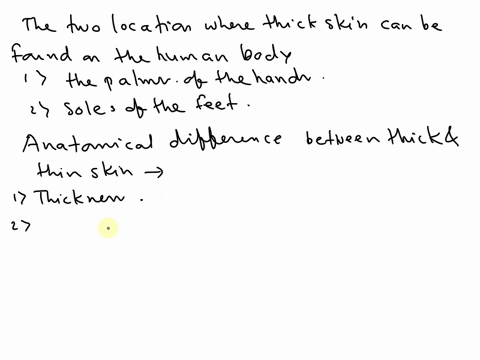 The two location where thick skin can be
found on the human body
1> the palms of the hands.
2> Soles of the feet.
Anatomical difference between thick &
thin skin →
1> Thickness.
2>